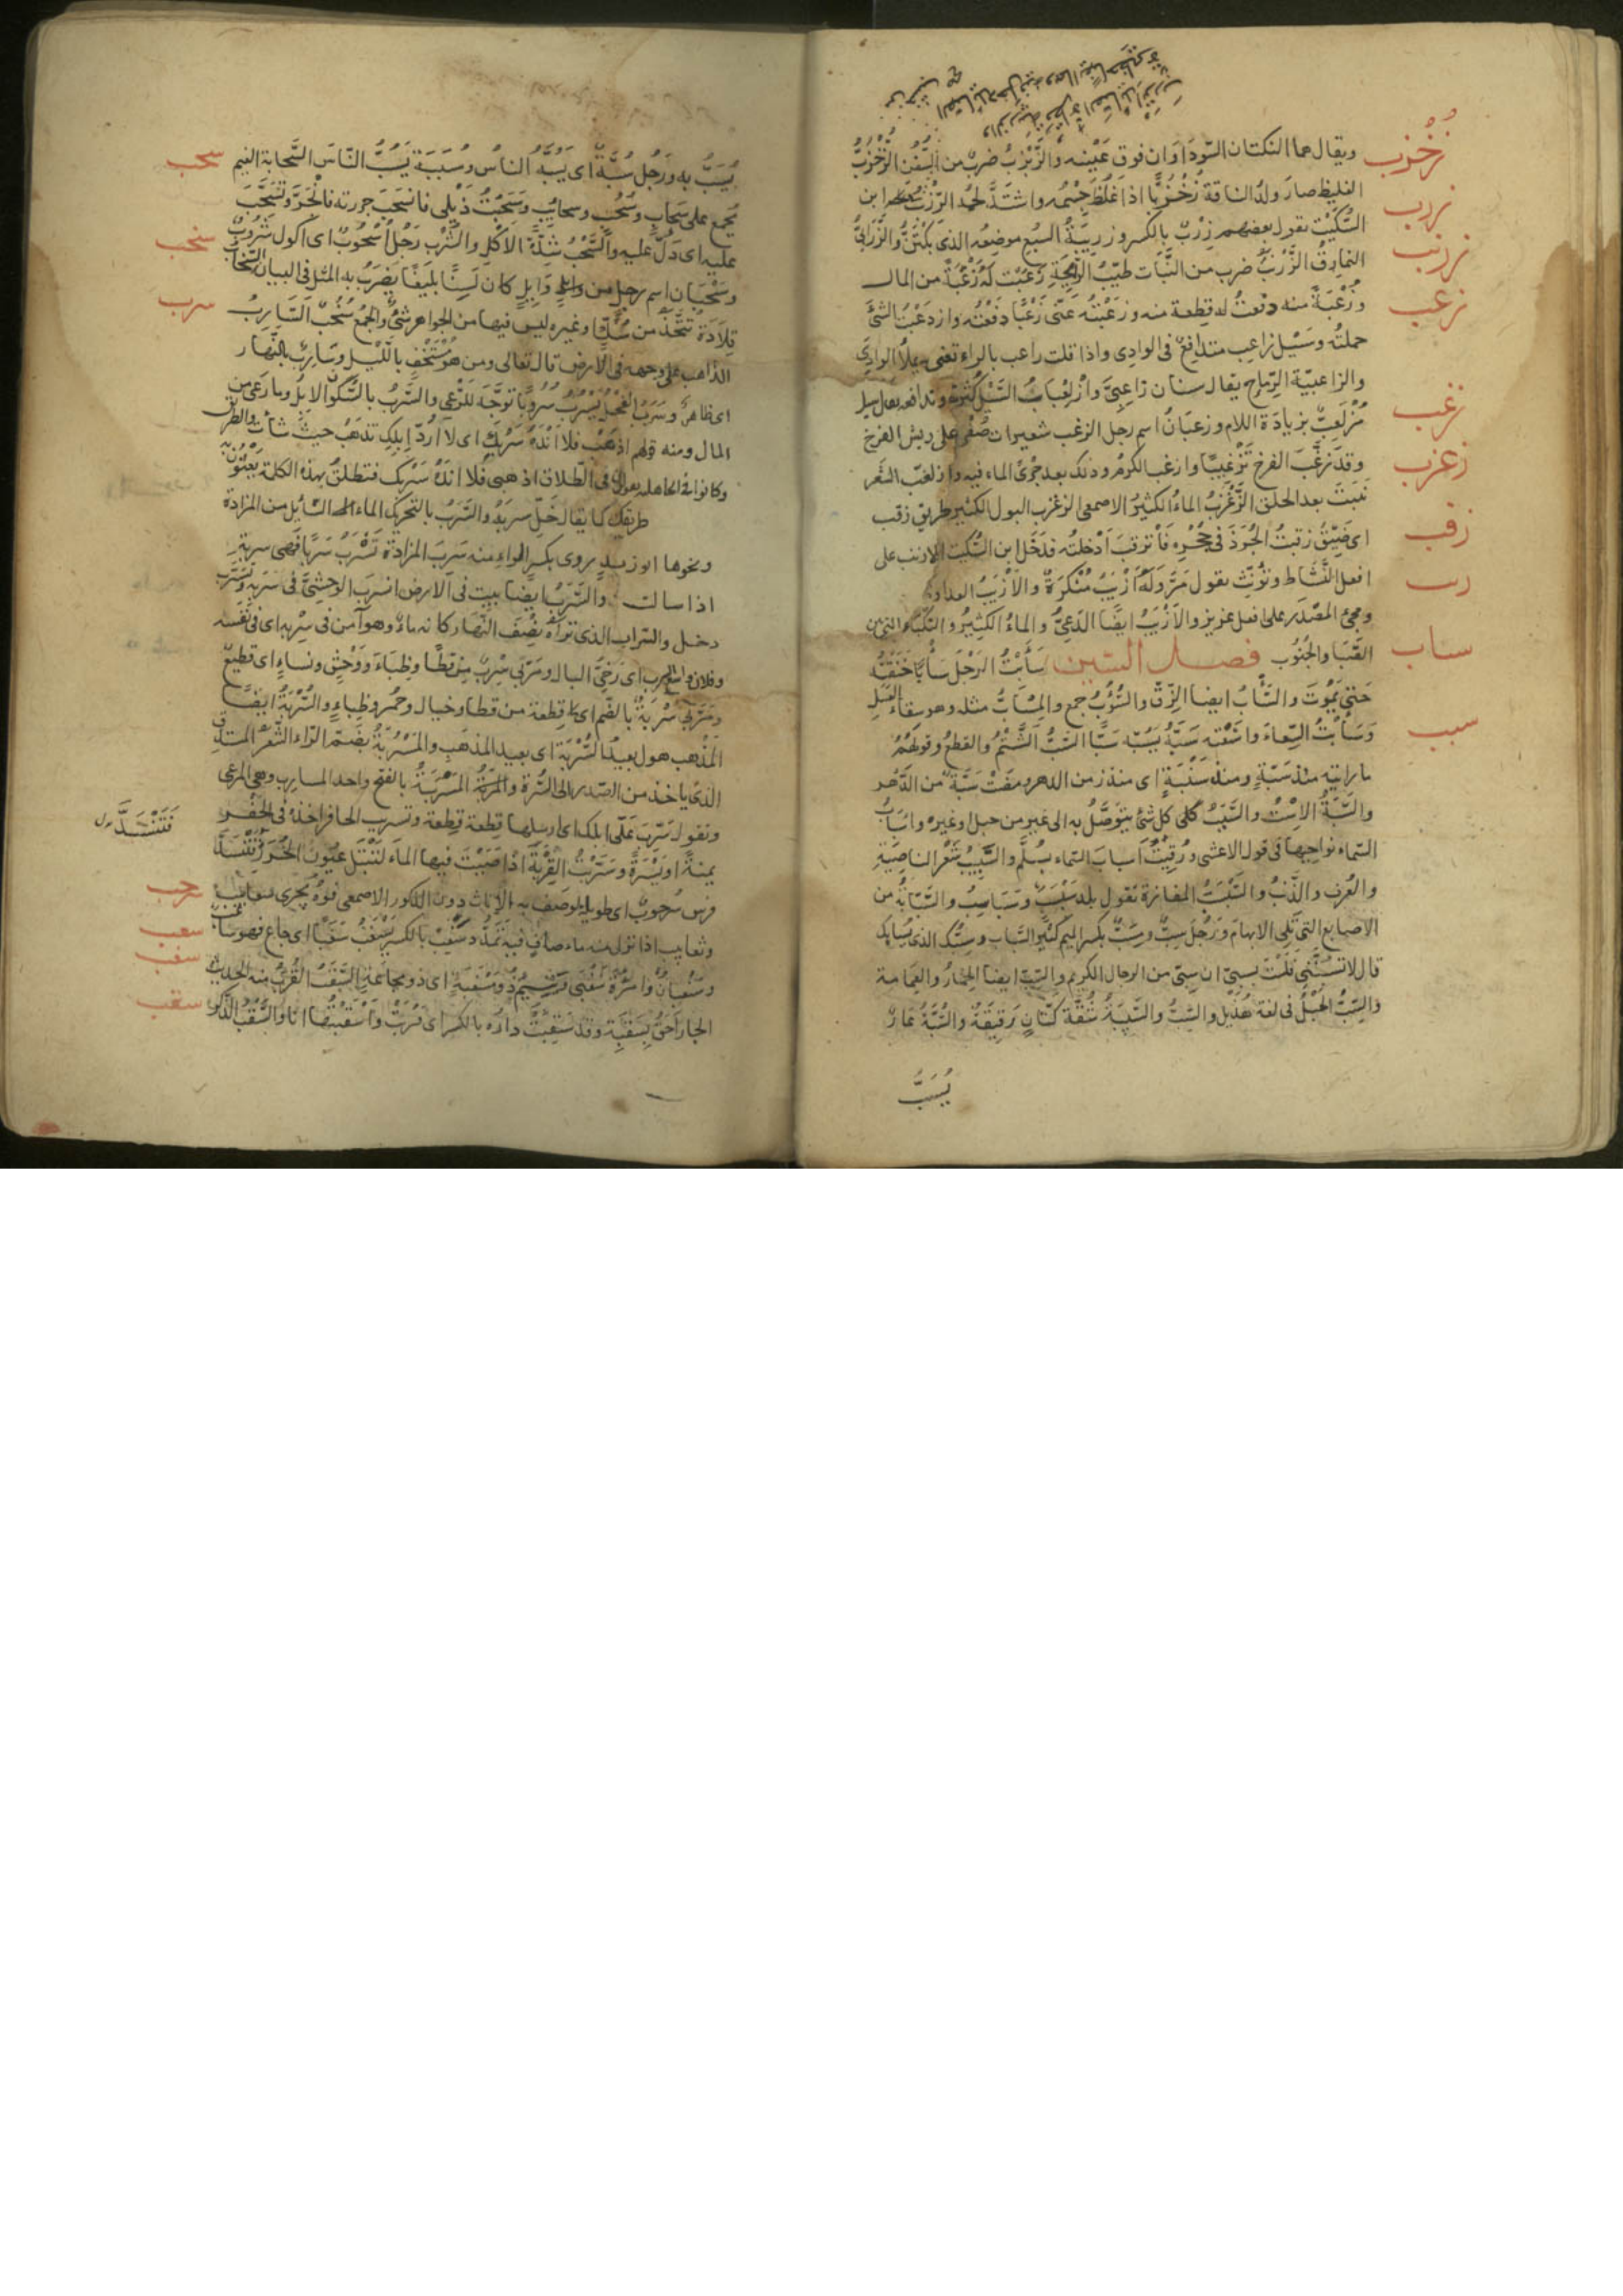 زخزب
ويقال هما النكتتان السوداوان فوق عينيه والزبزب ضرب من السفن الزخزب
الغليظ صار ولد الناقة زخزبا اذا غلظ جسمه واشتد لحمه الزرب ابن
زرب
السكيت تقول بعضهم زرب بالكسر وزريبة السبع موضعه الذي يكتن والزرابي
زرنب
النمارق الزرنب ضرب من النبات طيب الرائحة زعبت له زعبة من المال
زعب
وزعبة منه دفعت له قطعة منه وزعبته عني زعبا دفعته وازدعبت الشئ
حملته وسيل زاعب متدافع في الوادي واذا قلت راعب بالراء تعني يملأ الوادي
والزاعبية الرماح يقال سنان زاعبي وازلعباب السيل كثرته وتدافعه يقال سيل
زغب
مزلعب بزيادة اللام وزعبان اسم رجل الزغب شعيرات صفر على ريش الفرخ
وقد زغب الفرخ تزغيبا وازغب الكرم وذلك بعد جري الماء فيه وازلغب الشعر
زغرب
نبت بعد الحلق الزغرب الماء الكثير الاصمعي الزغرب البول الكثير طريق زقب
زقب
اي ضيق زقبت الجرذ في جحره فانزقب ادخلته فدخل ابن السكيت الازيب على
زيب
افعل النشاط وتؤنث تقول مر وله ازيب منكرة والازيب العداوة
ومجئ المصدر على افعل عزيز والازيب ايضا الدعي والماء الكثير والنكباء التي بين
ساب
الصبا والجنوب فصل السين سأبت الرجل سأبا خنقته
حتى يموت والسأب ايضا الزق والسؤب جمع والمسأب مثله وهو سقاء العسل
سبب
وسأبت السقاء وسعته سبه يسبه سبا السب الشتم والقطع وقولهم
ما رايته منذ سبة ومنذ سنبة اي منذ زمن من الدهر ومضت سبة من الدهر
والسبة الاست والسبب كل شئ يتوصل به الى غيره من حبل وغيره واسباب
السماء نواحيها في قول الاعشى ورقيت اسباب السماء بسلم والسبيب شعر الناصية
والعرف والذنب والسبسب المفازة تقول بلد سبسب وسباسب والسبابة من
الاصابع التي تلي الابهام ورجل سب ومسب بكسر الميم كثير السباب وسبك الذي يسابك
قال لا تسبنني فلست بسبي ان سبي من الرجال الكريم والسب ايضا الخمار والعمامة
والسب الحبل في لغة هذيل والسب والسبيبة شقة كتان رقيقة والسبة عار
يسب
يسب به ورجل سبة اي يسبه الناس وسببة يسب الناس السحابة الغيم
سحب
يجمع على سحاب وسحب وسحايب وسحبت ذيلي فانسحب جررته فانجر وتسحب
عليه اي دل عليه والسحب شدة الاكل والشرب رجل اسحوب اي اكول شروب
سخب
وسحبان اسم رجل من وائل كان لسنا بليغا يضرب به المثل في البيان السخاب
قلادة تتخذ من سك وغيره ليس فيها من الجواهر شئ والجمع سخب السارب
سرب
الذاهب على وجهه في الارض قال تعالى ومن هو مستخف بالليل وسارب بالنهار
اي ظاهر وسرب الفحل يسرب سروبا توجه للرعي والسرب بالسكون الابل وما رعى من
المال ومنه قولهم اذهب فلا انده سربك اي لا ارد ابلك تذهب حيث شاءت والطريق
وكانوا في الجاهلية يقولون في الطلاق اذهبي فلا انده سربك فتطلق بهذه الكلمة يعنون به
طريقك كما يقال خل سربه والسرب بالتحريك الماء السائل من المزادة
ونحوها ابو زيد يروى بكسر الراء منه سرب المزادة تسرب سربا فهي سربة
اذا سالت والسرب ايضا بيت في الارض انسرب الوحشي في سربه وتسرب
دخل والسراب الذي تراه نصف النهار كانه ماء وهو آمن في سربه اي في نفسه
وفلان واسع السرب اي رخي البال ومر بي سرب من قطا وظباء ووحش ونساء اي قطيع
ومر بي سربة بالضم اي قطعة من قطا وخيل وحمر وظباء والسربة ايضا
المذهب هو بعيد السربة اي بعيد المذهب والمسربة بضم الراء الشعر المستدق
الذي ياخذ من الصدر الى السرة والمسربة بالفتح واحد المسارب وهي المراعي
وتقول سرب علي الابل اي ارسلها قطعة قطعة وتسريب الحافر اخذه في الحفر
فتنسد
يمنة او يسرة وسربت القربة اذا صببت فيها الماء لتبتل عيون الخرز فتنسد
سرحب
فرس سرحوب اي طويلة يوصف به الاناث دون الذكور الاصمعي فوه يجري سعابيب
سعب
وثعابيب اذا سال منه ماء صاف فيه تمدد سغب بالكسر يسغب سغبا اي جاع فهو ساغب
سغب
وسغبان وامراة سغبى ويتيم ذو مسغبة اي ذو مجاعة السقب القرب منه الحديث
سقب
الجار احق بسقبه وقد سقبت داره بالكسر اي قربت واسقبتها انا والسقب الذكر